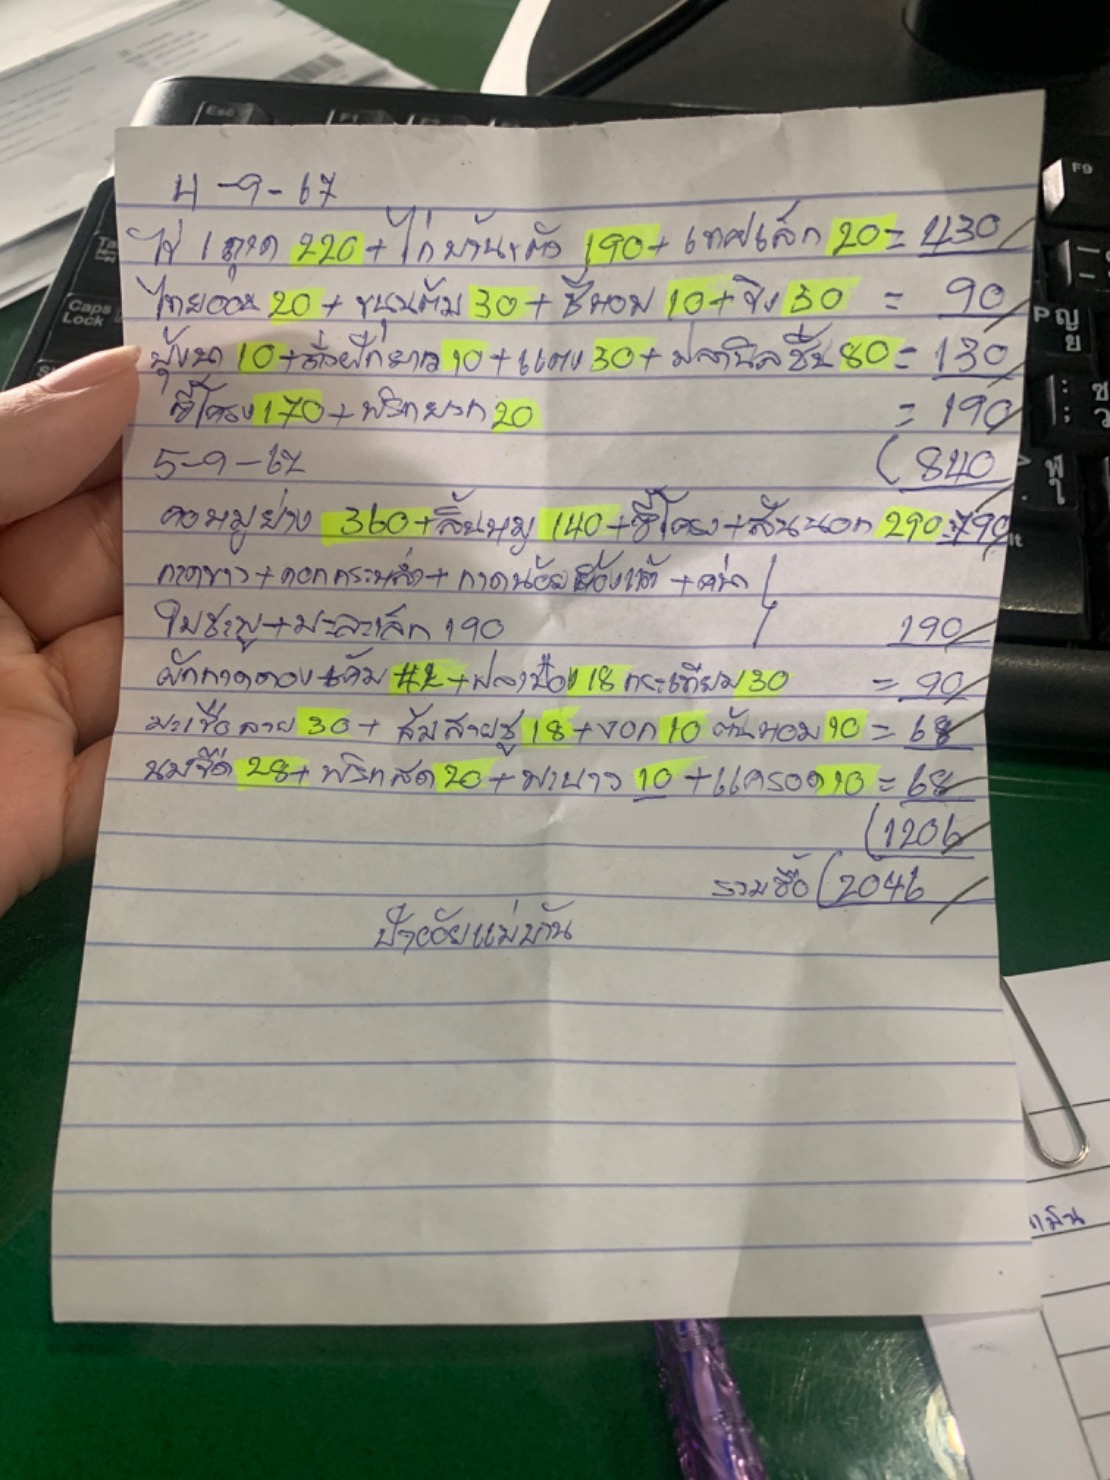 4-9-67
ไข่ 1 ถาด 220 + ไก่บ้าน 1 ตัว 190 + เทศเล็ก 20 = 430
ไทยอ่อน 20 + ขนุนต้ม 30 + ชีหอม 10 + ขิง 30 = 90
ผุ้งนา 10 + ถั่วฝักยาว 10 + แตง 30 + ปลานิลชิ้น 80 = 130
ซี่โครง 170 + พริกหยวก 20 = 190
(840
5-9-67
คอหมูย่าง 360 + ลิ้นหมู 140 + ซี่โครง + สันนอก 290 = 790
กาดขาว + ดอกกระหล่ำ + กาดน้อยฮ่องเต้ + คน้า
ใบชะพู + มะละเล็ก 190 190
ผักกาดดองเค็ม 42 + ปลาป๋อง 18 กระเทียม 30 = 90
มะเขือลาย 30 + ส้มสายชู 18 + งอก 10 ต้นหอม 10 = 68
นมจืด 28 + พริกสด 20 + มะนาว 10 + แครอด 10 = 68
(1206
รวมซื้อ (2046
ป้าอ้อยแม่บ้าน
Esc
F1
F9
Caps Lock
P ญ
ย